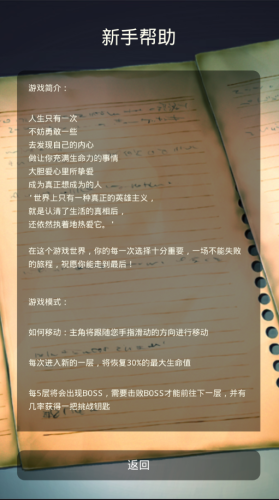 新手帮助
游戏简介：
人生只有一次
不妨勇敢一些
去发现自己的内心
做让你充满生命力的事情
大胆爱心里所挚爱
成为真正想成为的人
‘世界上只有一种真正的英雄主义，
就是认清了生活的真相后，
还依然执着地热爱它。’
在这个游戏世界，你的每一次选择十分重要，一场不能失败
的旅程，祝愿你能走到最后！
游戏模式：
如何移动：主角将跟随您手指滑动的方向进行移动
每次进入新的一层，将恢复30%的最大生命值
每5层将会出现BOSS，需要击败BOSS才能前往下一层，并有
几率获得一把挑战钥匙
返回